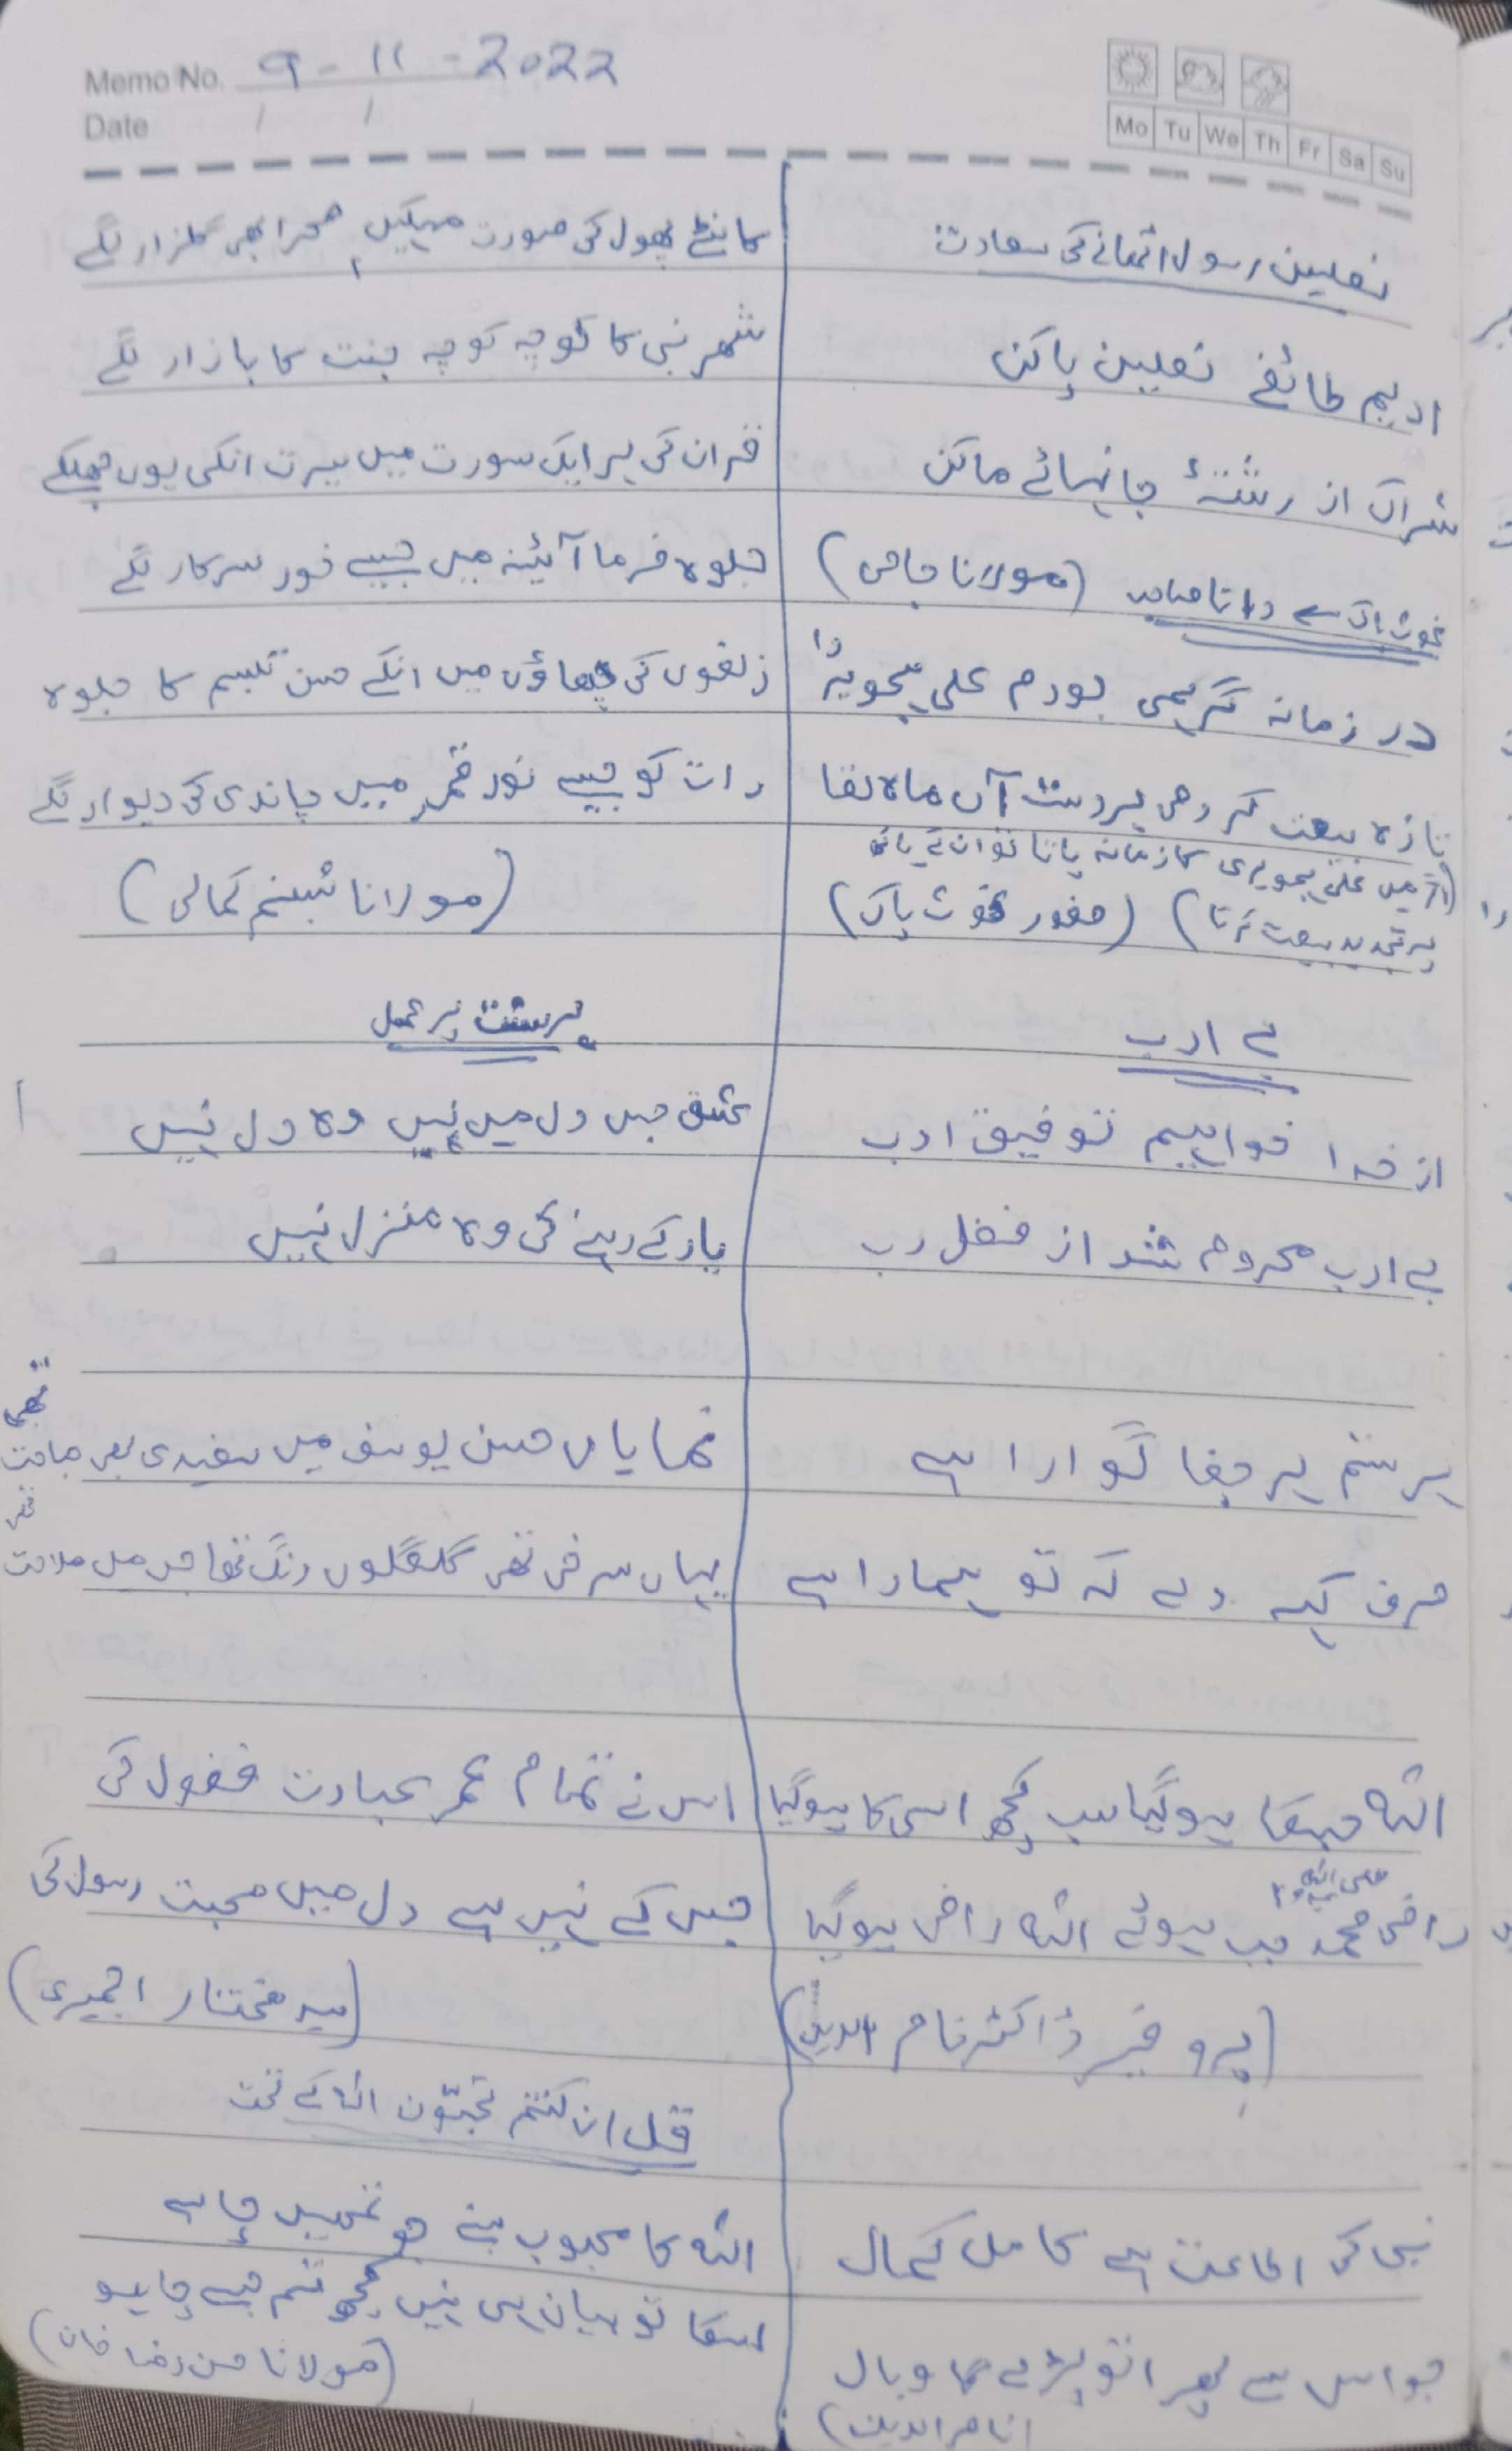 Memo No. 9-11-2022
Date / /
Mo Tu We Th Fr Sa Su
نعلین رسول اٹھانے کی سعادت
ادیم طائفے نعلین پاکن
شراک از رشتۂ جانہائے ماکن
(مولانا جامی)
غوث پاک ← داتا صاحب
در زمانہ گریمی بودم علی ہجویر را
تازہ بیعت کردمی بردست آں ماہ لقا
(اگر میں علی ہجویری کا زمانہ پاتا تو ان کے ہاتھ
پر تجدید بیعت کرتا) (حضور غوث پاک)
بے ادب
از خدا خواہیم توفیق ادب
بے ادب محروم شد از فضل رب
ہر ستم ہر جفا گوارا ہے
صرف کہہ دے کہ تو ہمارا ہے
اللہ جسکا ہوگیا سب کچھ اسی کا ہوگیا
راضی محمد صلی اللہ جب ہوئے اللہ راضی ہوگیا
(پروفیسر ڈاکٹر ناصر الدین)
نبی کی اطاعت ہے کامل کمال
جو اس سے پھرا تو پڑے گا وبال
(ناصر الدین)
کانٹے پھول کی صورت مہکیں صحرا بھی گلزار لگے
شھر نبی کا کوچہ کوچہ جنت کا بازار لگے
قران کی ہر ایک سورت میں سیرت انکی یوں جھلکے
جلوہ فرما آئینہ میں جیسے خود سرکار لگے
زلفوں کی چھاؤں میں انکے حسن تبسم کا جلوہ
رات کو جیسے نور قمر میں چاندی کی دیوار لگے
(مولانا شبنم کمالی)
ہر سنت پر عمل
عشق جس دل میں نہیں وہ دل نہیں
یار کے رہنے کی وہ منزل نہیں
نمایاں حسن یوسف میں سفیدی تھی
یہاں سرخی تھی گلگوں رنگ تھا جس میں ملاحت تھی
اس نے تمام عمر عبادت فضول کی
جس کے نہیں ہے دل میں محبت رسول کی
(سید مختار اجمیری)
قل ان کنتم تحبّون اللہ کے تحت
اللہ کا محبوب بنے جو تمھیں چاہے
اسکا تو بیاں ہی نہیں کچھ تم جسے چاہو
(مولانا حسن رضا خان)